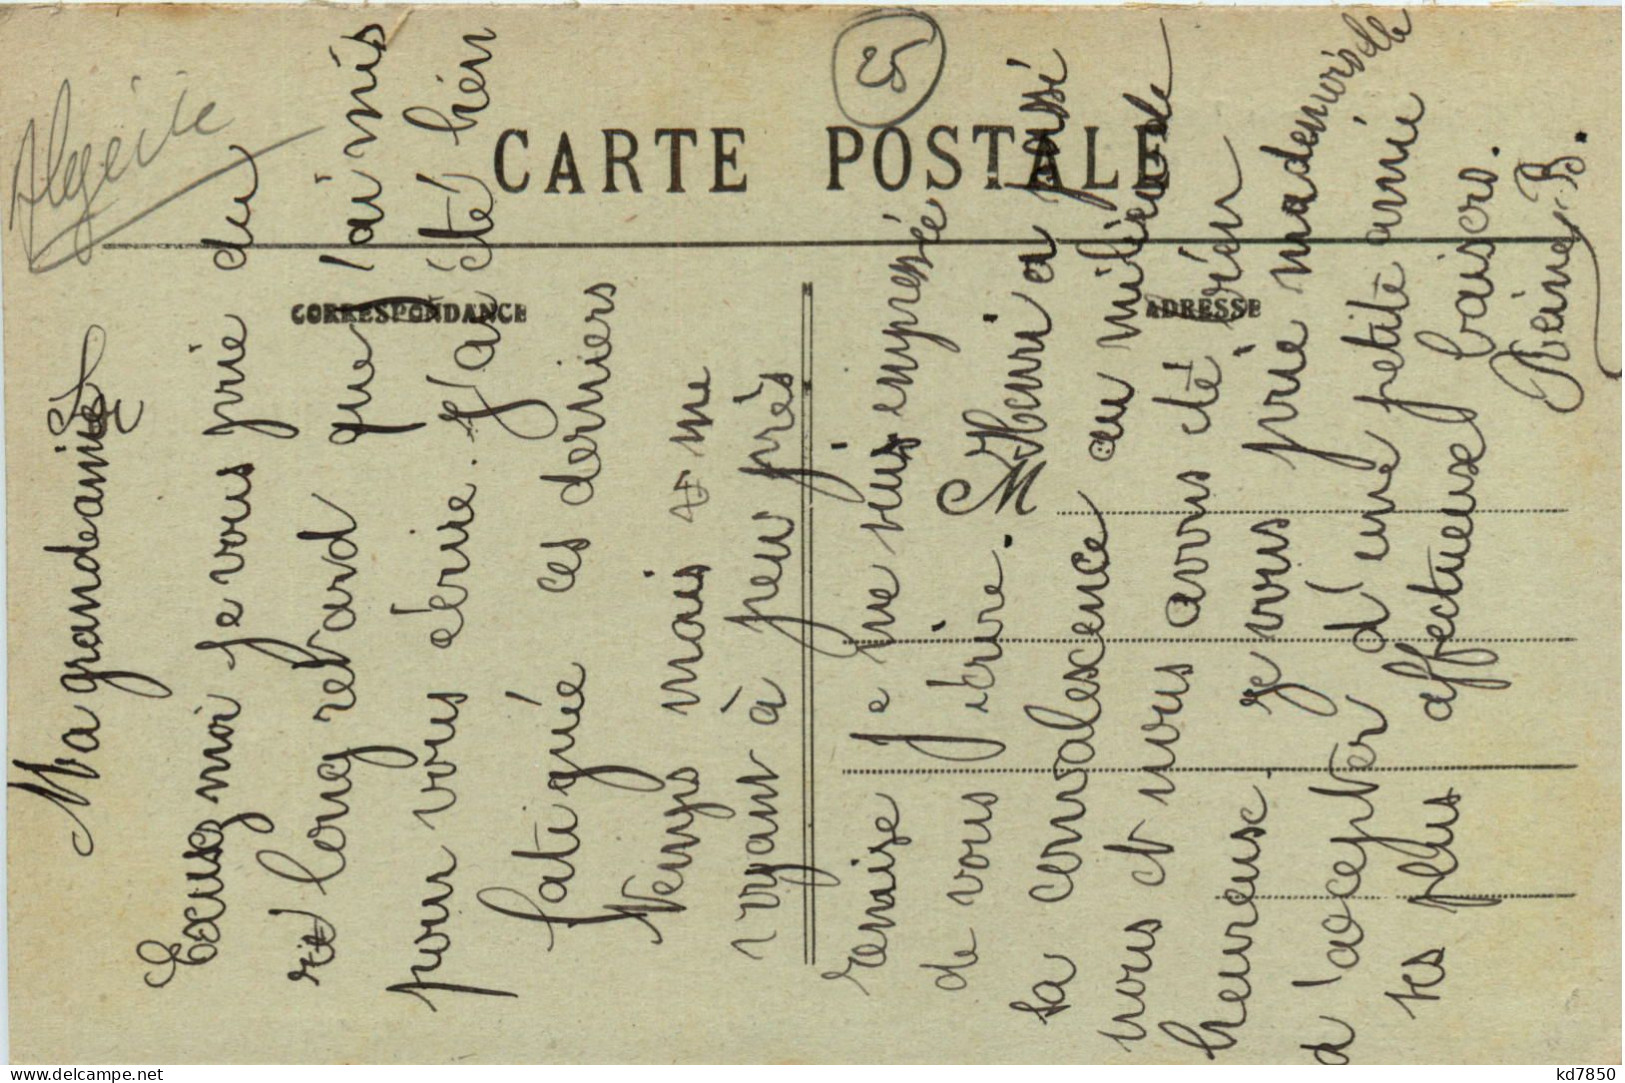 Algérie
25
CARTE POSTALE
CORRESPONDANCE
ADRESSE
Ma grande amie
Excusez moi je vous prie du
si long retard que j'ai mis
pour vous écrire. J'ai été bien
fatiguée ces derniers
temps mais me
voyant à peu près
remise je me suis empressée
de vous écrire. M Henri a passé
sa convalescence au milieu de
nous et nous avons été bien
heureuse. Je vous prie mademoiselle
d'accepter d'une petite amie
ses plus affectueux baisers.
Reine B.
kd7850